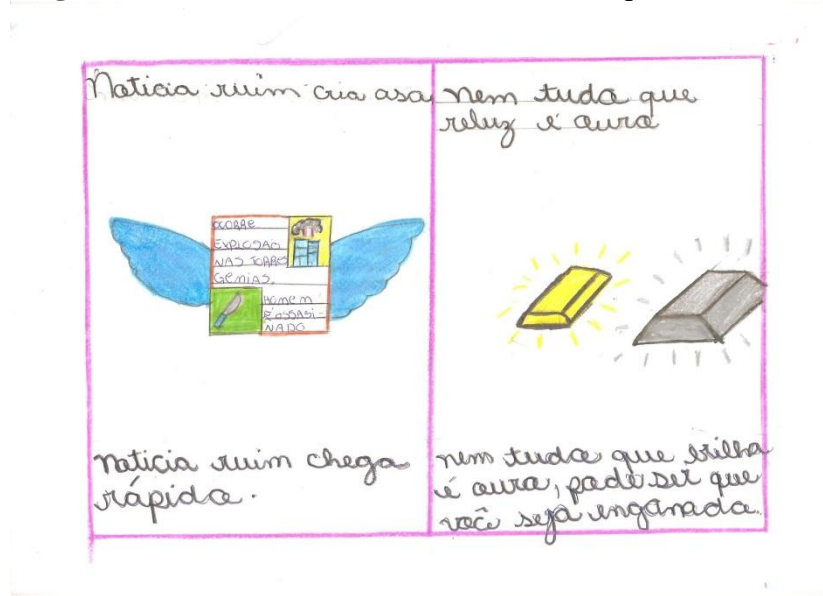 Noticia ruim cria asa
OCORRE
EXPLOSAO
NAS TORRES
GEMIAS.
HOMEM
E ASSASI-
NADO
noticia ruim chega
rápido.
nem tudo que
reluz é ouro
nem tudo que brilha
é ouro, pode ser que
você seja enganado.